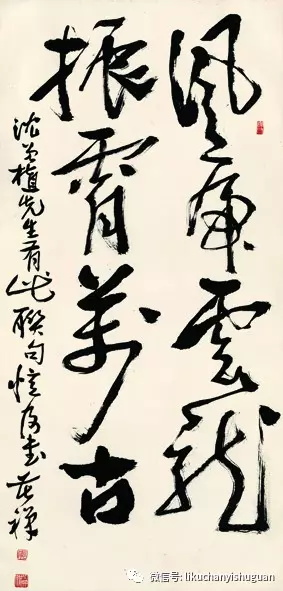 風虎雲龍
振霄萬古
沈曾植先生有此聯句憶及書 苦禅
微信号: likuchanyishuguan